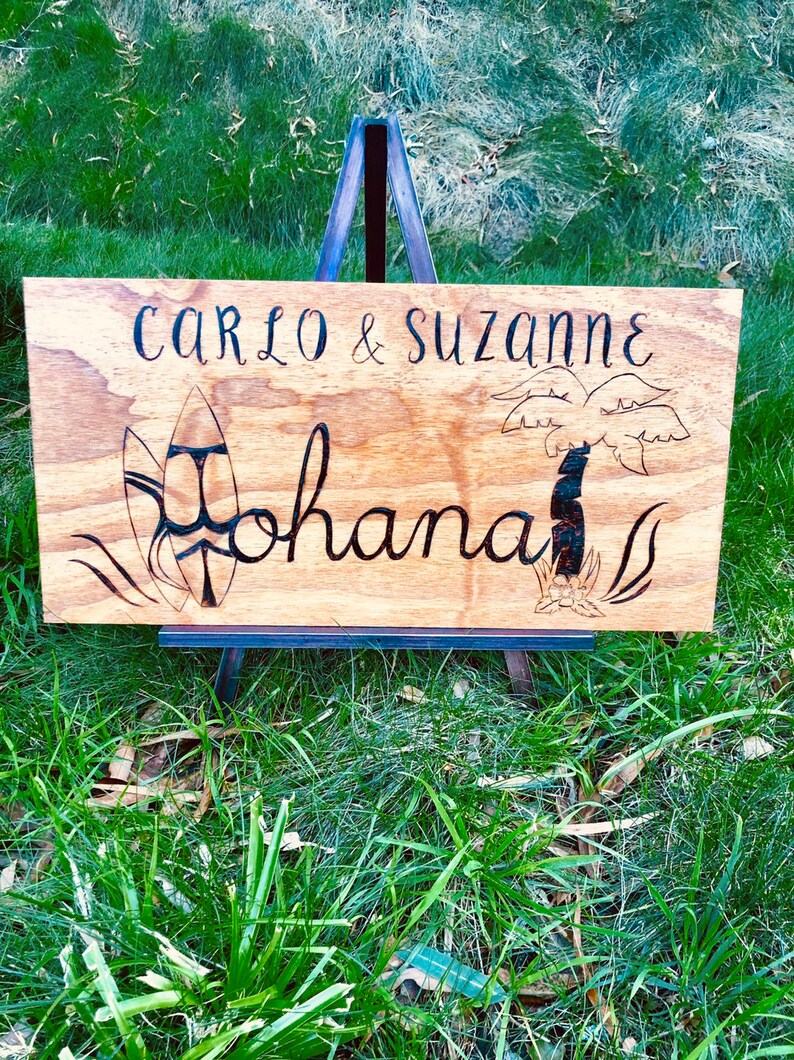 CARLO & SUZANNE
ohana